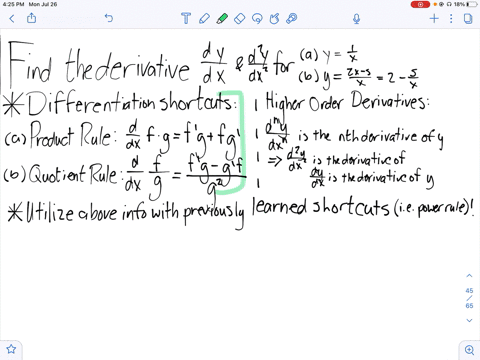 4:25 PM Mon Jul 26
18%
Find the derivative dy/dx & d²y/dx² for (a) y = 1/x
(b) y = (2x-5)/x = 2 - 5/x
* Differentiation shortcuts:
(a) Product Rule: d/dx f·g = f'g + fg'
(b) Quotient Rule: d/dx f/g = (f'g - g'f)/g²
| Higher Order Derivatives:
| dⁿy/dxⁿ is the nth derivative of y
| ⇒ d²y/dx² is the derivative of
| dy/dx is the derivative of y
* Utilize above info with previously learned shortcuts (i.e. power rule)!
45
/
65